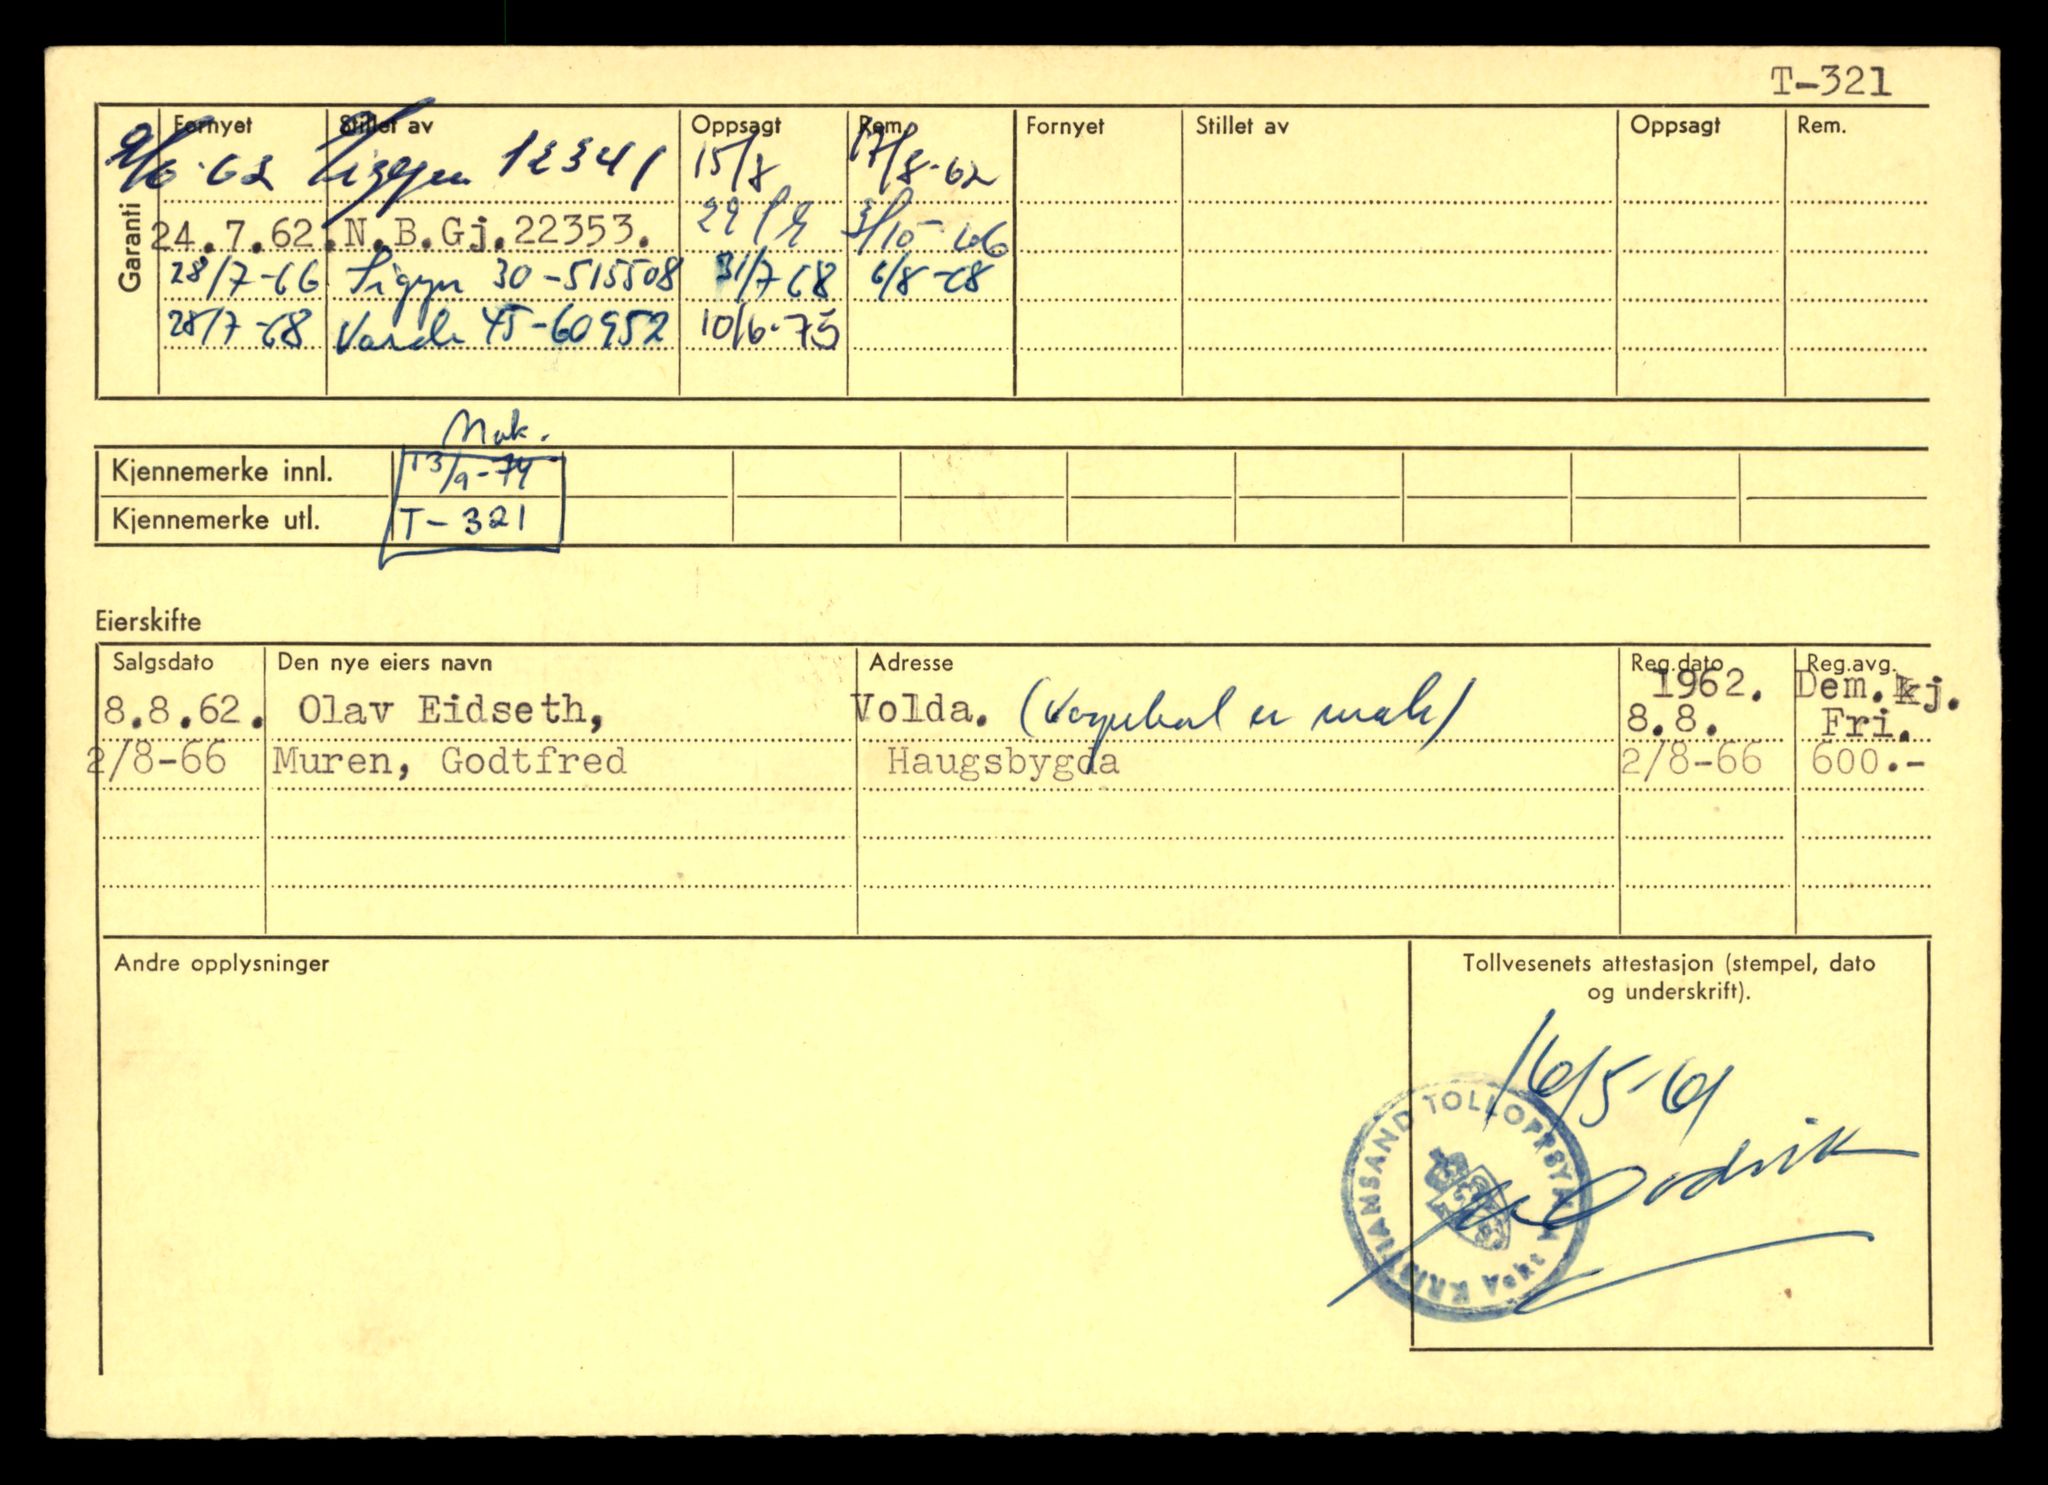 T-321
Fornyet Stillet av Oppsagt Rem. Fornyet Stillet av Oppsagt Rem.
Garanti
9/6-62 12341 15/8 17/8-62
24.7.62. N.B.Gj.22353. 29/9 3/10-66
28/7-66 Sigyn 30-515508 31/7 68 6/8-68
28/7-68 Varde 45-60952 10/6-75
Mak.
Kjennemerke innl. 13/9-74
Kjennemerke utl. T-321
Eierskifte
Salgsdato Den nye eiers navn Adresse Reg.dato Reg.avg.
1962. Dem.kj.
8.8.62. Olav Eidseth, Volda. (Vognkort er mak) 8.8. Fri.
2/8-66 Muren, Godtfred Haugsbygda 2/8-66 600.-
Andre opplysninger
Tollvesenets attestasjon (stempel, dato
og underskrift).
16/5-61
KRISTIANSAND TOLLOPPSYN